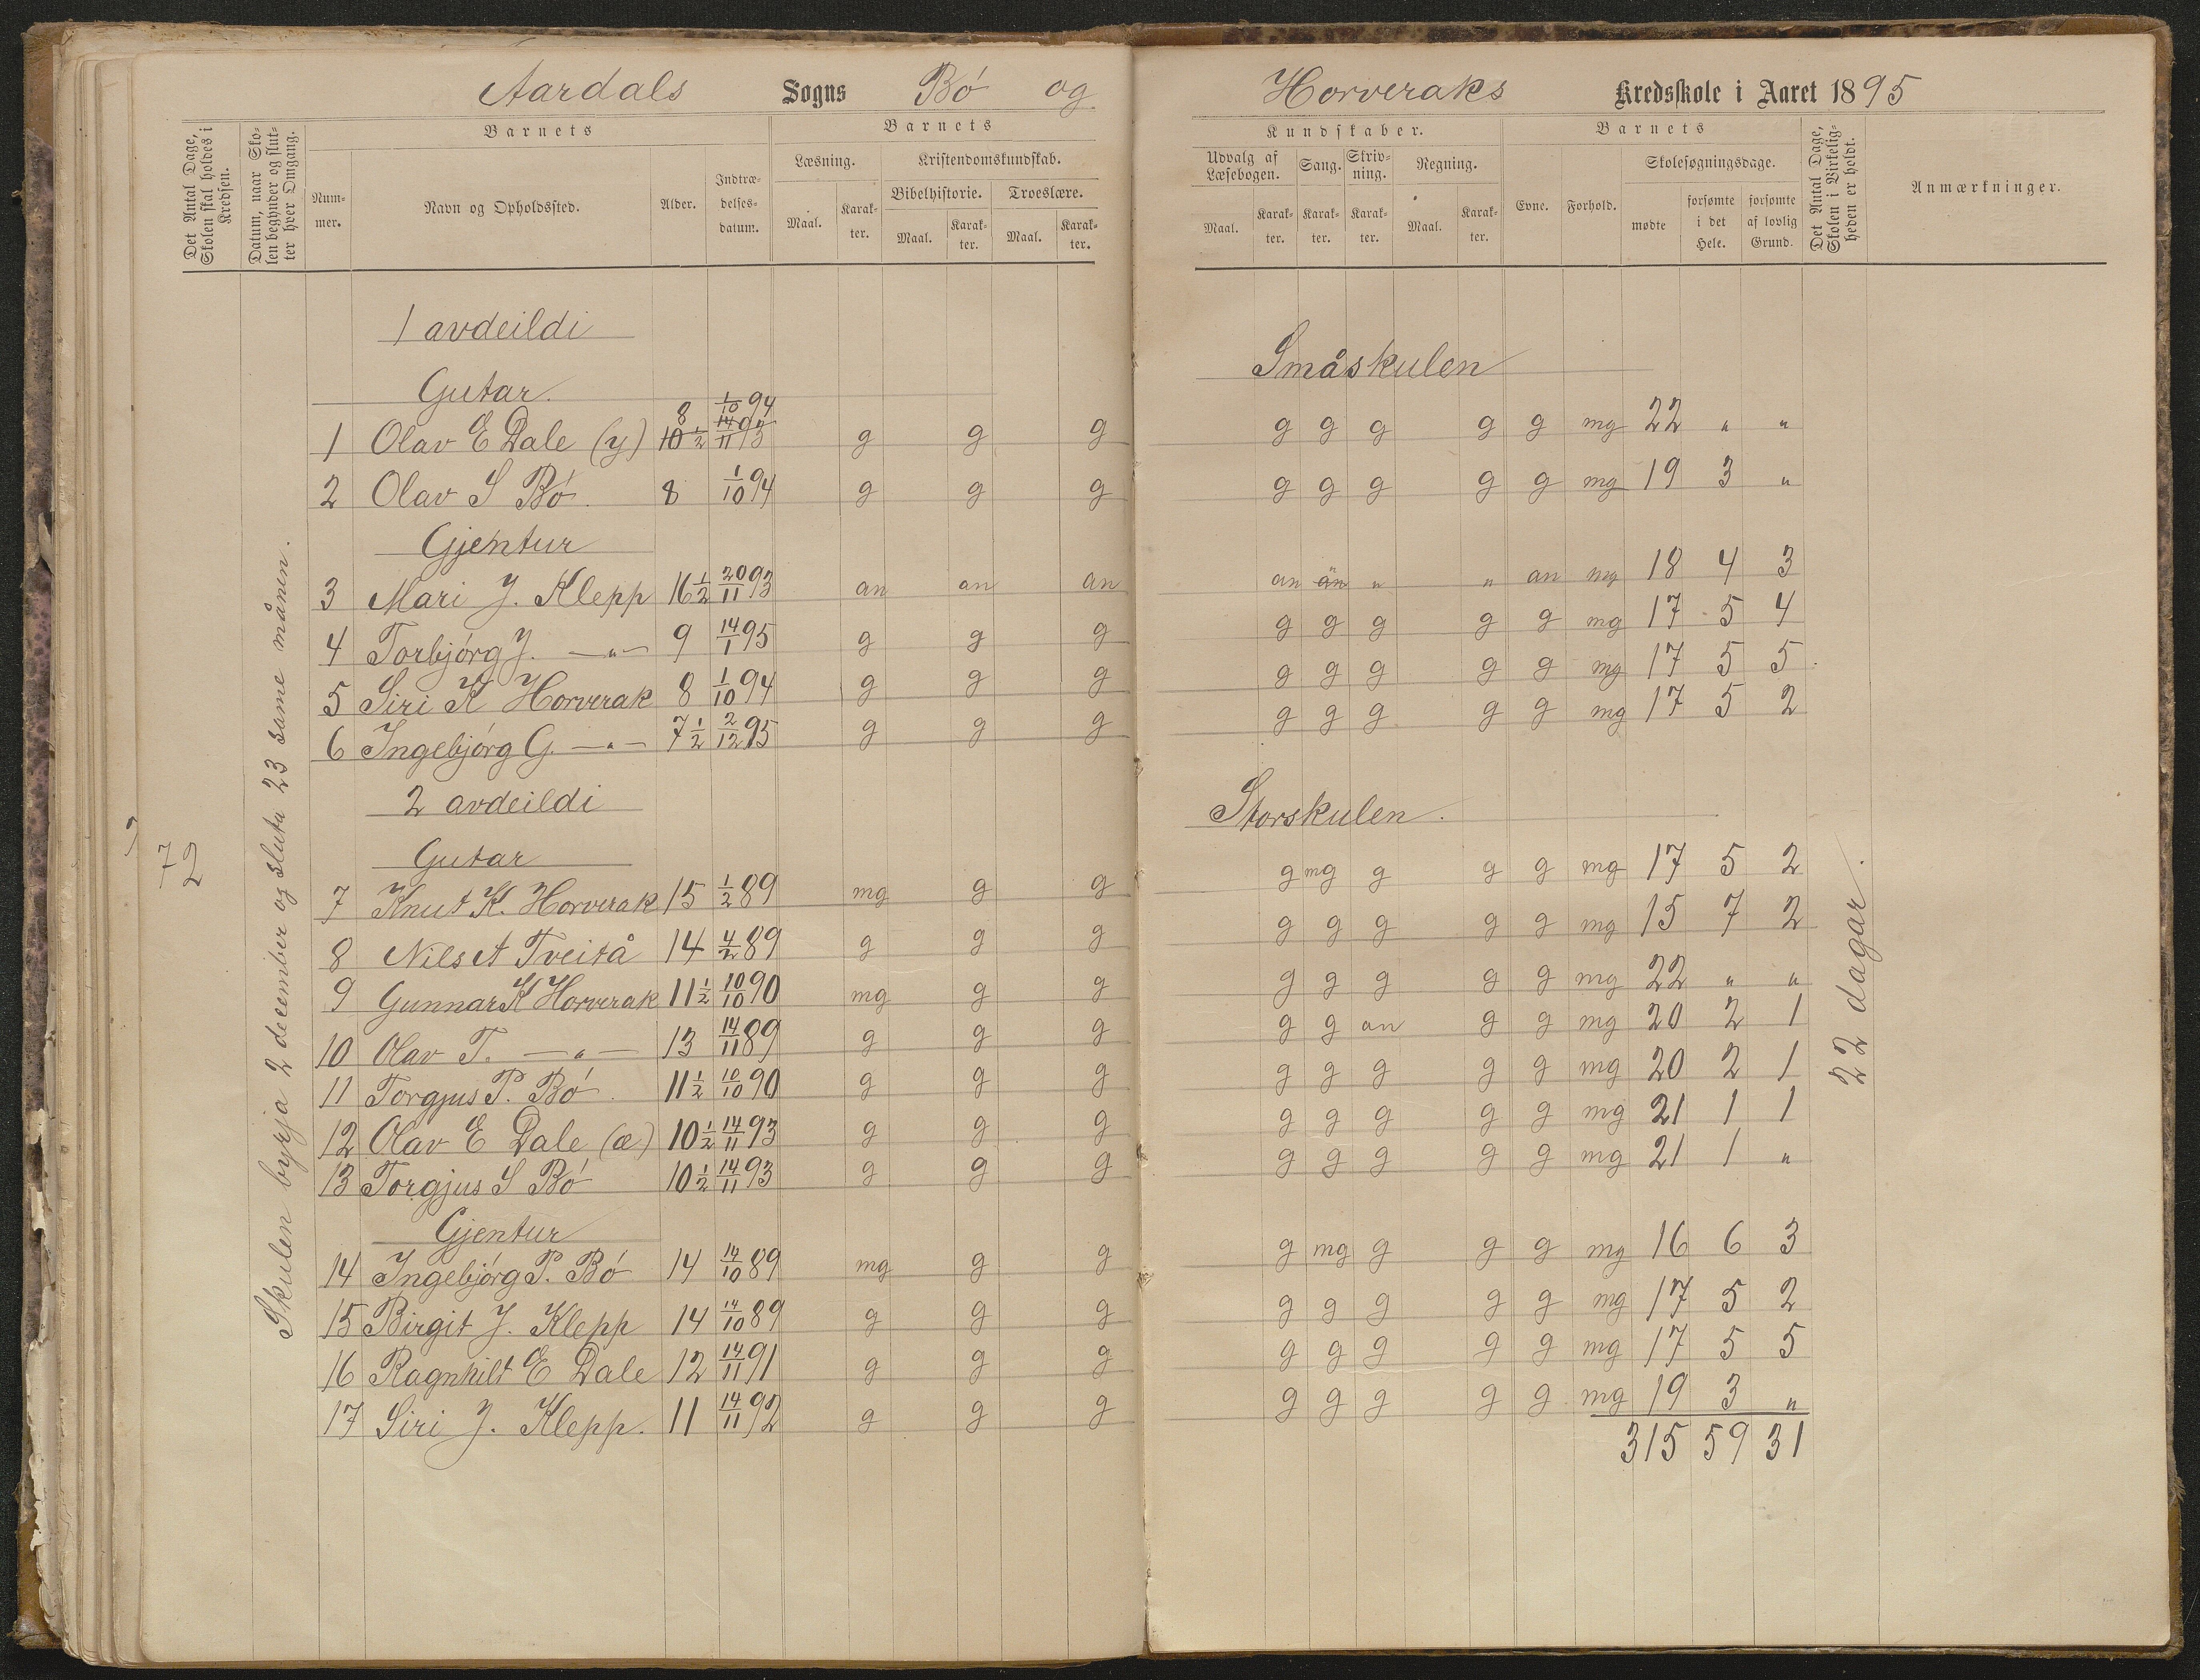 Aardals Sogns Bó og Horveraks Kredsskole i Aaret 1895
Det Antal Dage, Skolen skal holdes i Kredsen.
Datum, naar Skolen begynder og slutter hver Omgang.
Barnets
Nummer.
Navn og Opholdssted.
Alder.
Indtrædelsesdatum.
Barnets
Læsning.
Maal.
Karakter.
Kristendomskundskab.
Bibelhistorie.
Maal.
Karakter.
Troeslære.
Maal.
Karakter.
Kundskaber.
Udvalg af Læsebogen.
Maal.
Karakter.
Sang.
Karakter.
Skrivning.
Karakter.
Regning.
Maal.
Karakter.
Barnets
Evne.
Forhold.
Skolesøgningsdage.
mødte
forsømte i det Hele.
forsømte af lovlig Grund.
Det Antal Dage, Skolen i Virkeligheden er holdt.
Anmærkninger.
72
Skulen byrja 2 december og sluta 23 same månen.
1 avdeildi Småskulen
Gutar.
1 Olav E Dale (y) 8 10½ 1/10 94 14/11 93 g g g g g g g g mg 22 " "
2 Olav S Bó 8 1/10 94 g g g g g g g g mg 19 3 "
Gjentur
3 Mari J. Klepp 16½ 20/11 93 an an an an an " " an mg 18 4 3
4 Torbjórg J. —"— 9 14/1 95 g g g g g g g g mg 17 5 4
5 Siri K Horverak 8 1/10 94 g g g g g g g g mg 17 5 5
6 Ingebjórg G. —"— 7½ 2/12 95 g g g g g g g g mg 17 5 2
2 avdeildi Storskulen.
Gutar
7 Knut K. Horverak 15 1/2 89 mg g g g mg g g g mg 17 5 2
8 Nils A Tveitå 14 4/2 89 g g g g g g g g mg 15 7 2
9 Gunnar K Horverak 11½ 10/10 90 mg g g g g g g g mg 22 " "
10 Olav T. —"— 13 14/11 89 g g g g g an g g mg 20 2 1
11 Torgjus P. Bó 11½ 10/10 90 g g g g g g g g mg 20 2 1
12 Olav E Dale (æ) 10½ 14/11 93 g g g g g g g g mg 21 1 1
13 Torgjus S Bó 10½ 14/11 93 g g g g g g g g mg 21 1 "
Gjentur
14 Ingebjórg P. Bó 14 14/10 89 mg g g g mg g g g mg 16 6 3
15 Birgit J. Klepp 14 14/10 89 g g g g g g g g mg 17 5 2
16 Ragnhilt E Dale 12 14/11 91 g g g g g g g g mg 17 5 5
17 Siri J. Klepp. 11 14/11 92 g g g g g g g g mg 19 3 "
315 59 31
22 dagar.